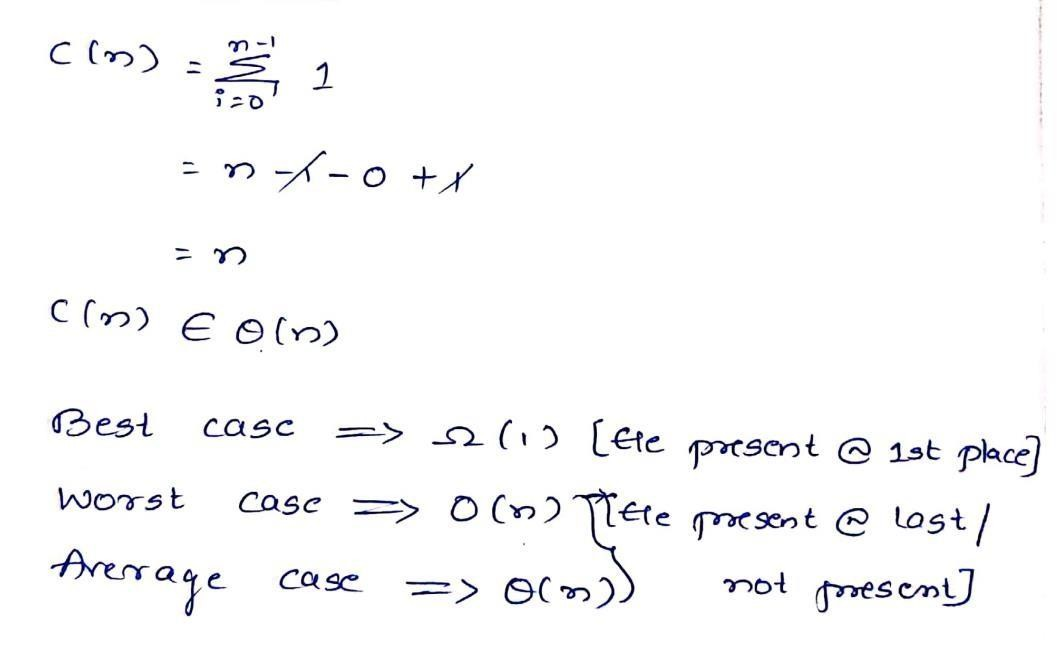 C(n) = n-1 Σ i=0 1
= n - 1 - 0 + 1
= n
C(n) ∈ Θ(n)
Best case => Ω(1) [Ele present @ 1st place]
Worst case => O(n) [Ele present @ last/
Average case => Θ(n) not present]